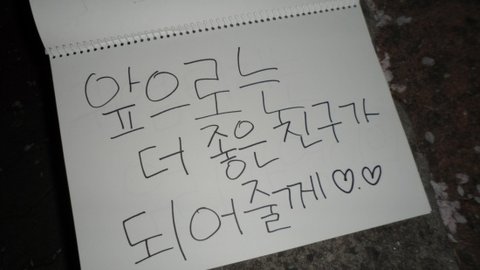 앞으로는
더 좋은 친구가
되어줄게♡.♡